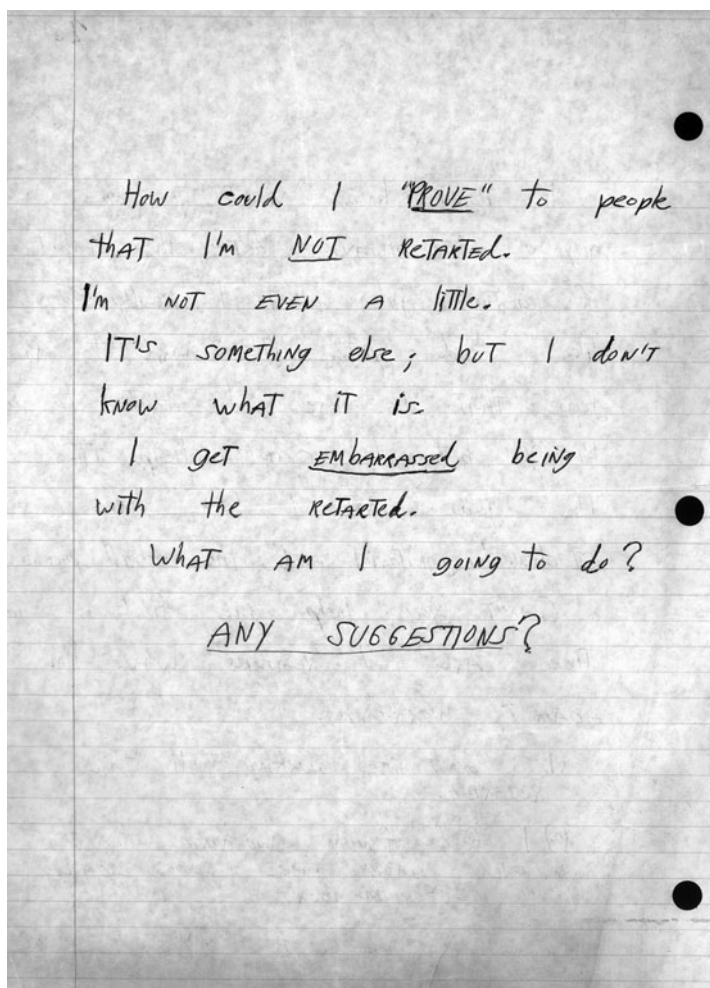 How could I "PROVE" to people
thAT I'm NOT ReTARTed.
I'm NOT EVEN A little.
IT's someTHiNg else; buT I doN'T
kNow whAT iT is.
I geT EMbARRAssed beiNg
with the ReTARTed.
WhAT AM I goiNg to do?
ANY SUGGESTIONS?